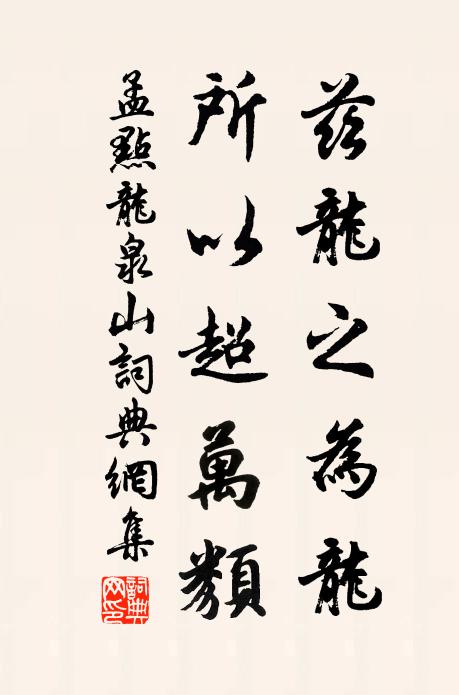 茲龍之為龍
所以超萬類
孟點龍泉山詞典網集
詞典網印